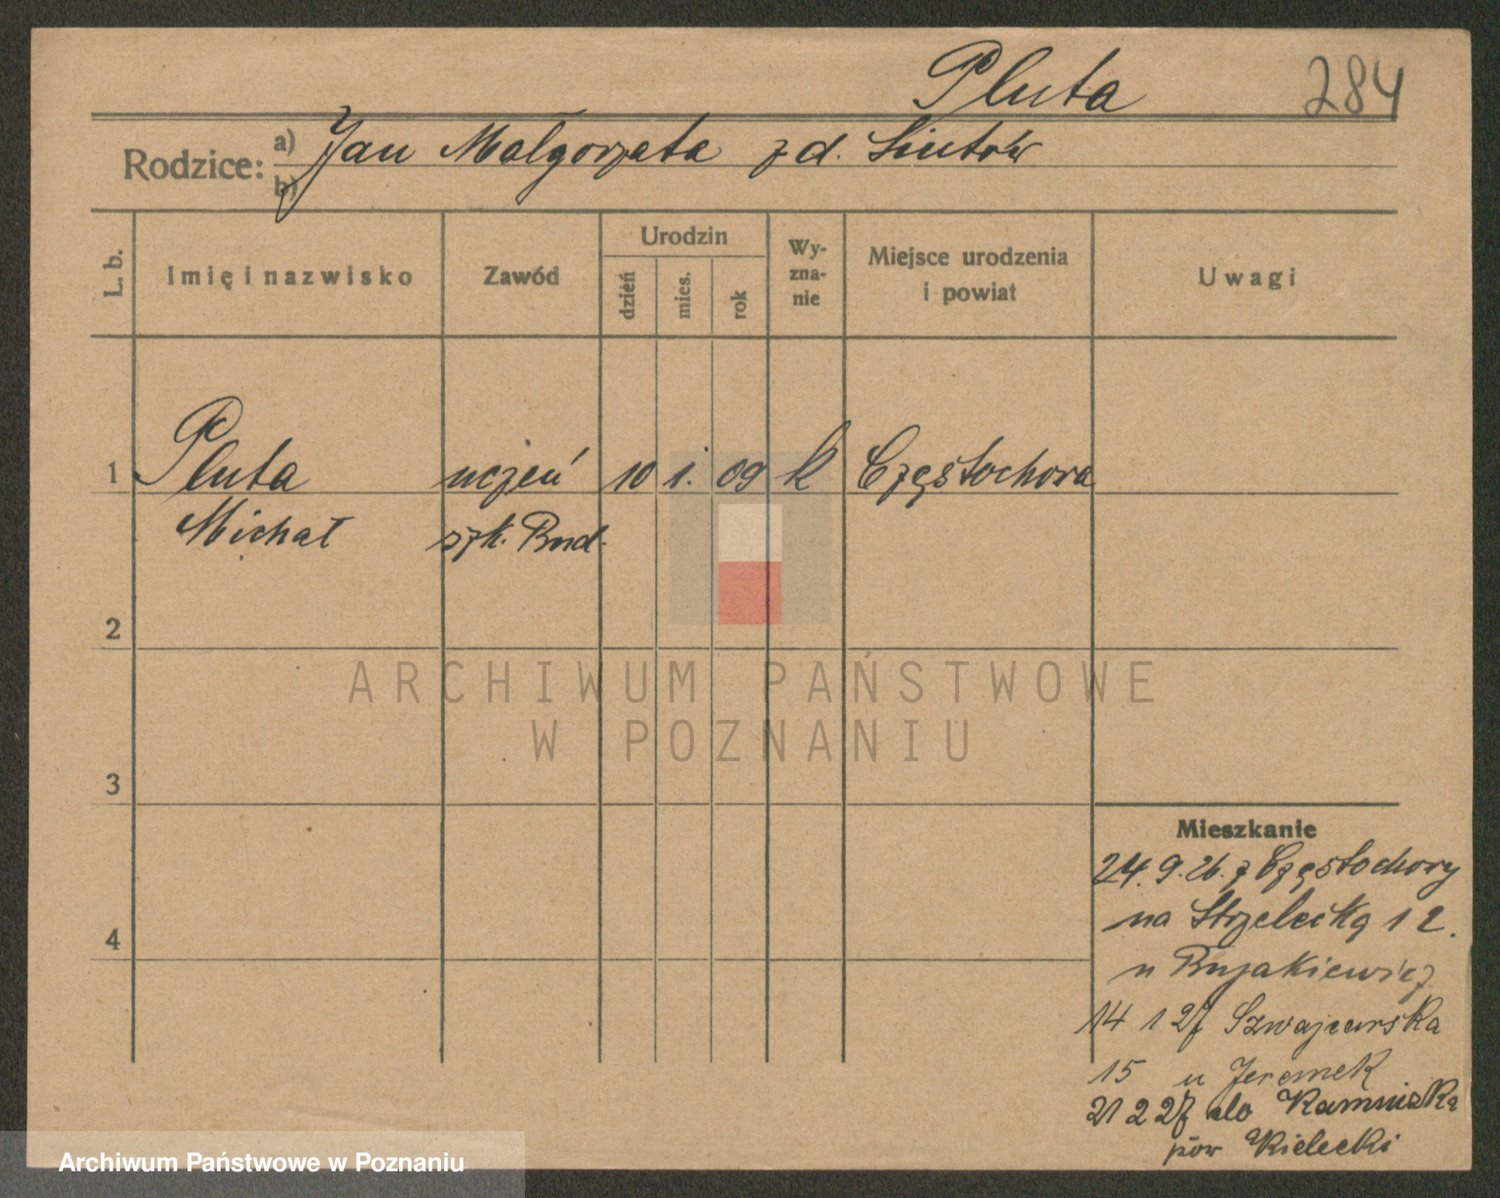 Pluta 284
Rodzice: a) Jan Małgorzata z d. Siutów
b)
L. b. Imię i nazwisko Zawód Urodzin dzień mies. rok Wy-zna-nie Miejsce urodzenia i powiat Uwagi
1 Pluta uczeń 10 1. 09 k Częstochowa
Michał szk. Bud.
2
3
4
Mieszkanie
24. 9. 26. z Częstochowy
na Strzelecką 12.
u Bujakiewicz
14 1 27 Szwajcarska
15 u Jeremek
21 2 27 do
pow Kielecki
ARCHIWUM PAŃSTWOWE
W POZNANIU
Archiwum Państwowe w Poznaniu